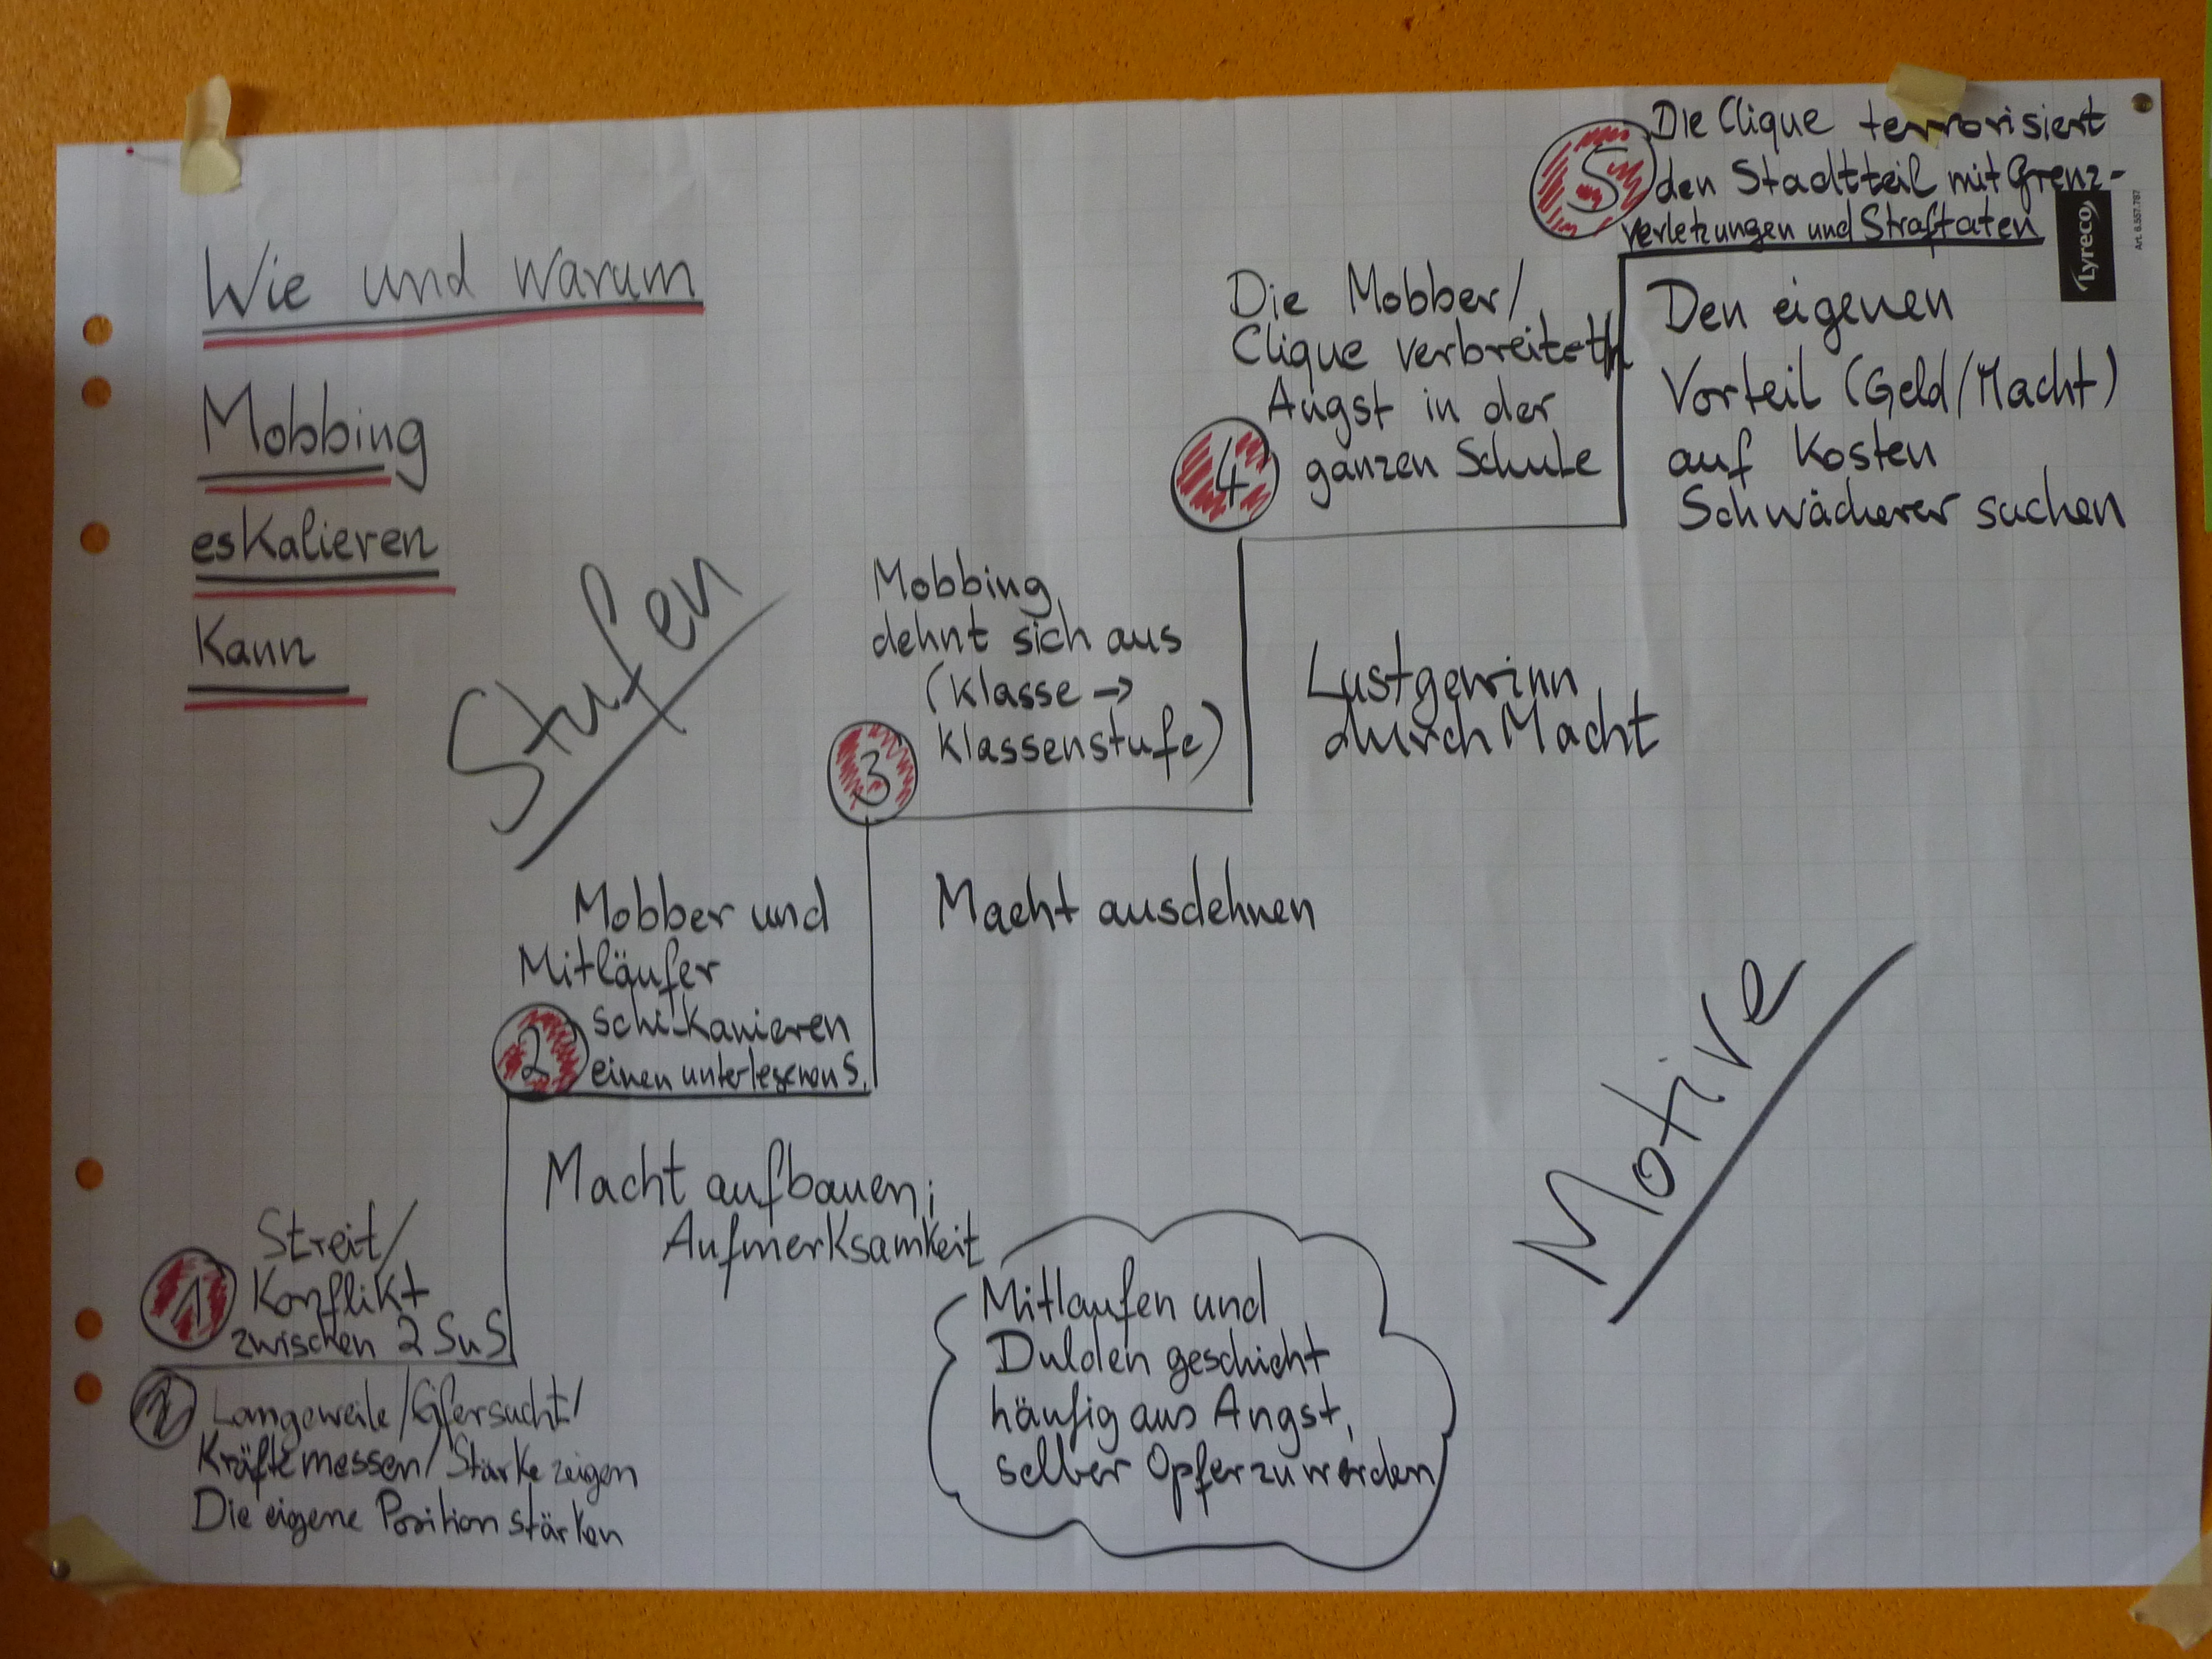 Wie und warum
Mobbing
eskalieren
kann
Stufen
5
Die Clique terrorisiert
den Stadtteil mit Grenz-
verletzungen und Straftaten
Lyreco
Art. 6.557.787
Den eigenen
Vorteil (Geld/Macht)
auf Kosten
Schwächerer suchen
4
Die Mobber/
Clique verbreitet
Angst in der
ganzen Schule
Lustgewinn
durch Macht
3
Mobbing
dehnt sich aus
(Klasse →
Klassenstufe)
Macht ausdehnen
2
Mobber und
Mitläufer
schikanieren
einen unterlegenen S.
Macht aufbauen;
Aufmerksamkeit
1
Streit/
Konflikt
zwischen 2 SuS
Langeweile/Eifersucht/
Kräftemessen/Stärke zeigen
Die eigene Position stärken
Mitlaufen und
Dulden geschieht
häufig aus Angst,
selber Opfer zu werden
Motive